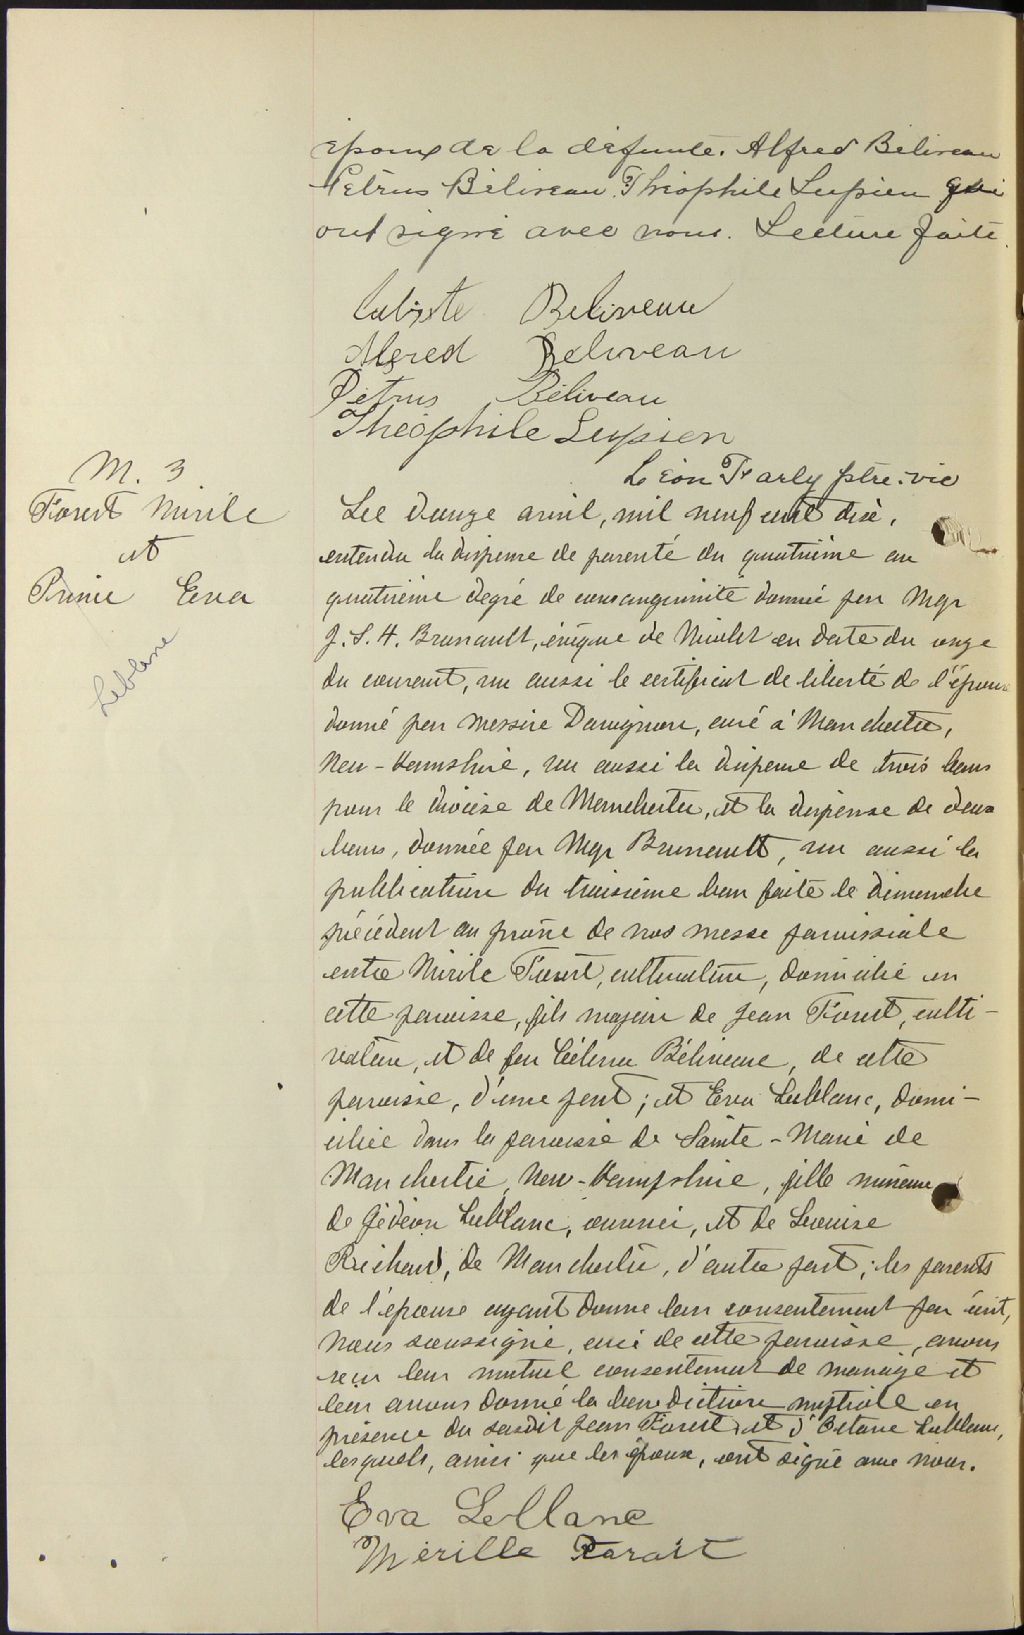 époux de la défunte. Alfred Béliveau
Pétrus Béliveau. Théophile Lupien qui
ont signé avec nous. Lecture faite.
Calixte Beliveau
Alfred Beliveau
Pétrus Béliveau
Théophile Lupien
Léon Farly ptre. vic
M. 3
Forest Mirile
et
Prince Eva
Leblanc
Le douze avril, mil neuf cent dix,
entendu la dispense de parenté du quatrième au
quatrième degré de consanguinité donnée par Mgr
J. S. H. Brunault, évêque de Nicolet en date du onze
du courant, vu aussi le certificat de liberté de l'épouse
donné par messire Davignon, curé à Manchester,
New-Hampshire, vu aussi la dispense de trois bans
pour le diocèse de Manchester, et la dispense de deux
bans, donnée par Mgr Brunault, vu aussi la
publication du troisième ban faite le dimanche
précédent au prône de nos messe paroissiale
entre Mirile Forest, cultivateur, domicilié en
cette paroisse, fils majeur de Jean Forest, culti-
vateur, et de feu Célina Béliveau, de cette
paroisse, d'une part; et Eva Leblanc, domi-
ciliée dans la paroisse de Sainte-Marie de
Manchester, New-Hampshire, fille mineure
de Gédéon Leblanc, ouvrier, et de Louise
Richard, de Manchester, d'autre part; les parents
de l'épouse ayant donné leur consentement par écrit,
Nous soussigné, curé de cette paroisse, avons
reçu leur mutuel consentement de mariage et
leur avons donné la bénédiction nuptiale en
présence du susdit Jean Forest et d'Octave Leblanc,
lesquels, ainsi que les époux, ont signé avec nous.
Eva LeBlanc
Mérille Farait